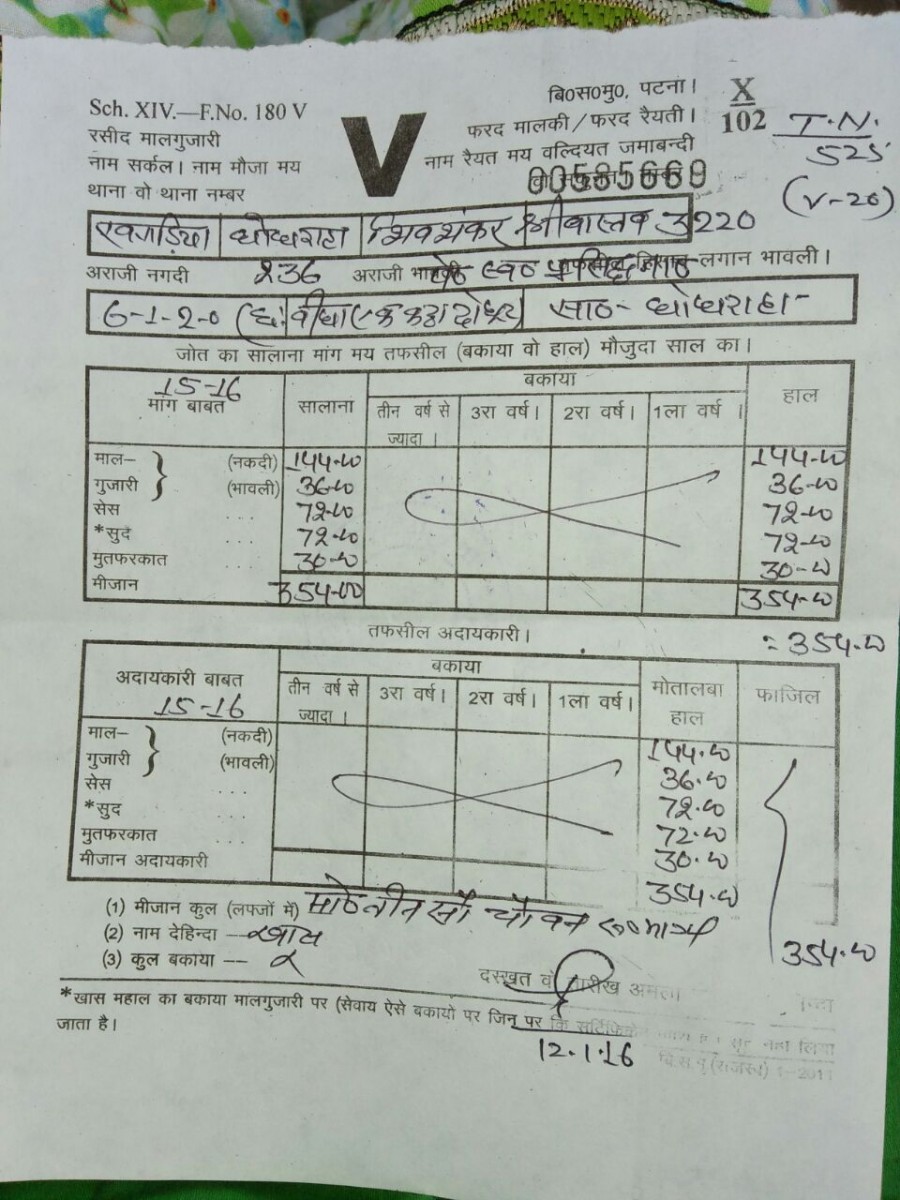 बि०स०मु०, पटना।
X
102
T.N.
525
(V-20)
Sch. XIV.—F.No. 180 V
V
फरद मालकी/फरद रैयती।
रसीद मालगुजारी
नाम रैयत मय वल्दियत जमाबन्दी
नाम सर्कल। नाम मौजा मय
थाना वो थाना नम्बर
00585669
शिवशंकर श्रीवास्तव 3220
अराजी नगदी 236 अराजी लगान भावली।
6-1-2-0
जोत का सालाना मांग मय तफसील (बकाया वो हाल) मौजुदा साल का।
15-16
मांग बाबत सालाना बकाया हाल
तीन वर्ष से ज्यादा। 3रा वर्ष। 2रा वर्ष। 1ला वर्ष।
माल– (नकदी) 144-00 144-00
गुजारी (भावली) 36-00 36-00
सेस ... 72-00 72-00
*सुद ... 72-00 72-00
मुतफरकात 30-00 30-00
मीजान 354-00 354-00
तफसील अदायकारी।
= 354-00
अदायकारी बाबत बकाया मोतालबा हाल फाजिल
15-16
तीन वर्ष से ज्यादा। 3रा वर्ष। 2रा वर्ष। 1ला वर्ष।
माल– (नकदी) 144.00
गुजारी (भावली) 36.00
सेस ... 72.00
*सुद ... 72.00
मुतफरकात ... 30.00
मीजान अदायकारी 354.00
(1) मीजान कुल (लफ्जों में) तीन सौ चौवन
(2) नाम देहिन्दा —
354.00
(3) कुल बकाया --
दस्खत वो तारीख अमला
*खास महाल का बकाया मालगुजारी पर (सेवाय ऐसे बकायो पर जिन पर कि
जाता है।
12.1.16